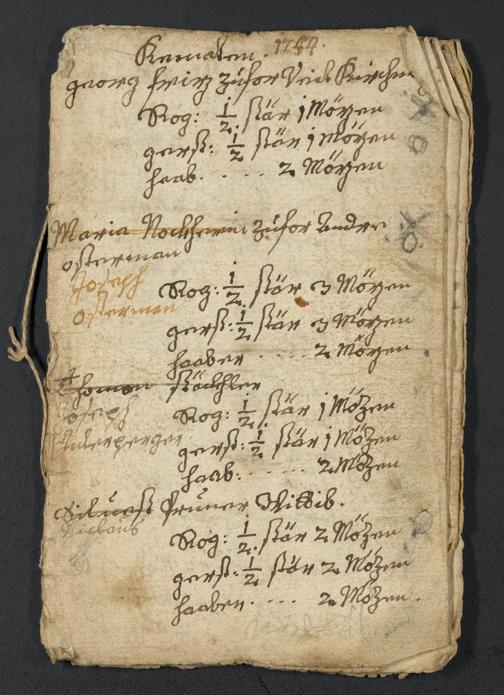 Kematen. 1784.
georg frirz zufor Veit Kirchm
Rog: 1/2 stär 1 Mözen
gerst: 1/2 stär 1 Mözen
haab. . . . . 2 Mözen
Maria Nockherin zufor Andre
osterman
Joseph
osterman
Rog: 1/2 stär 3 Mözen
gerst: 1/2 stär 3 Mözen
haaber . . . . 2 Mözen
Thoman stöckhler
Joseph
Rog: 1/2 stär 1 Mözen
gerst: 1/2 stär 1 Mözen
haab: . . . . . 2 Mözen
Siluest Pruner Wittib.
Niclaus
Rog: 1/2 stär 2 Mözen
gerst: 1/2 stär 2 Mözen
haaber. . . . 2 Mözen.